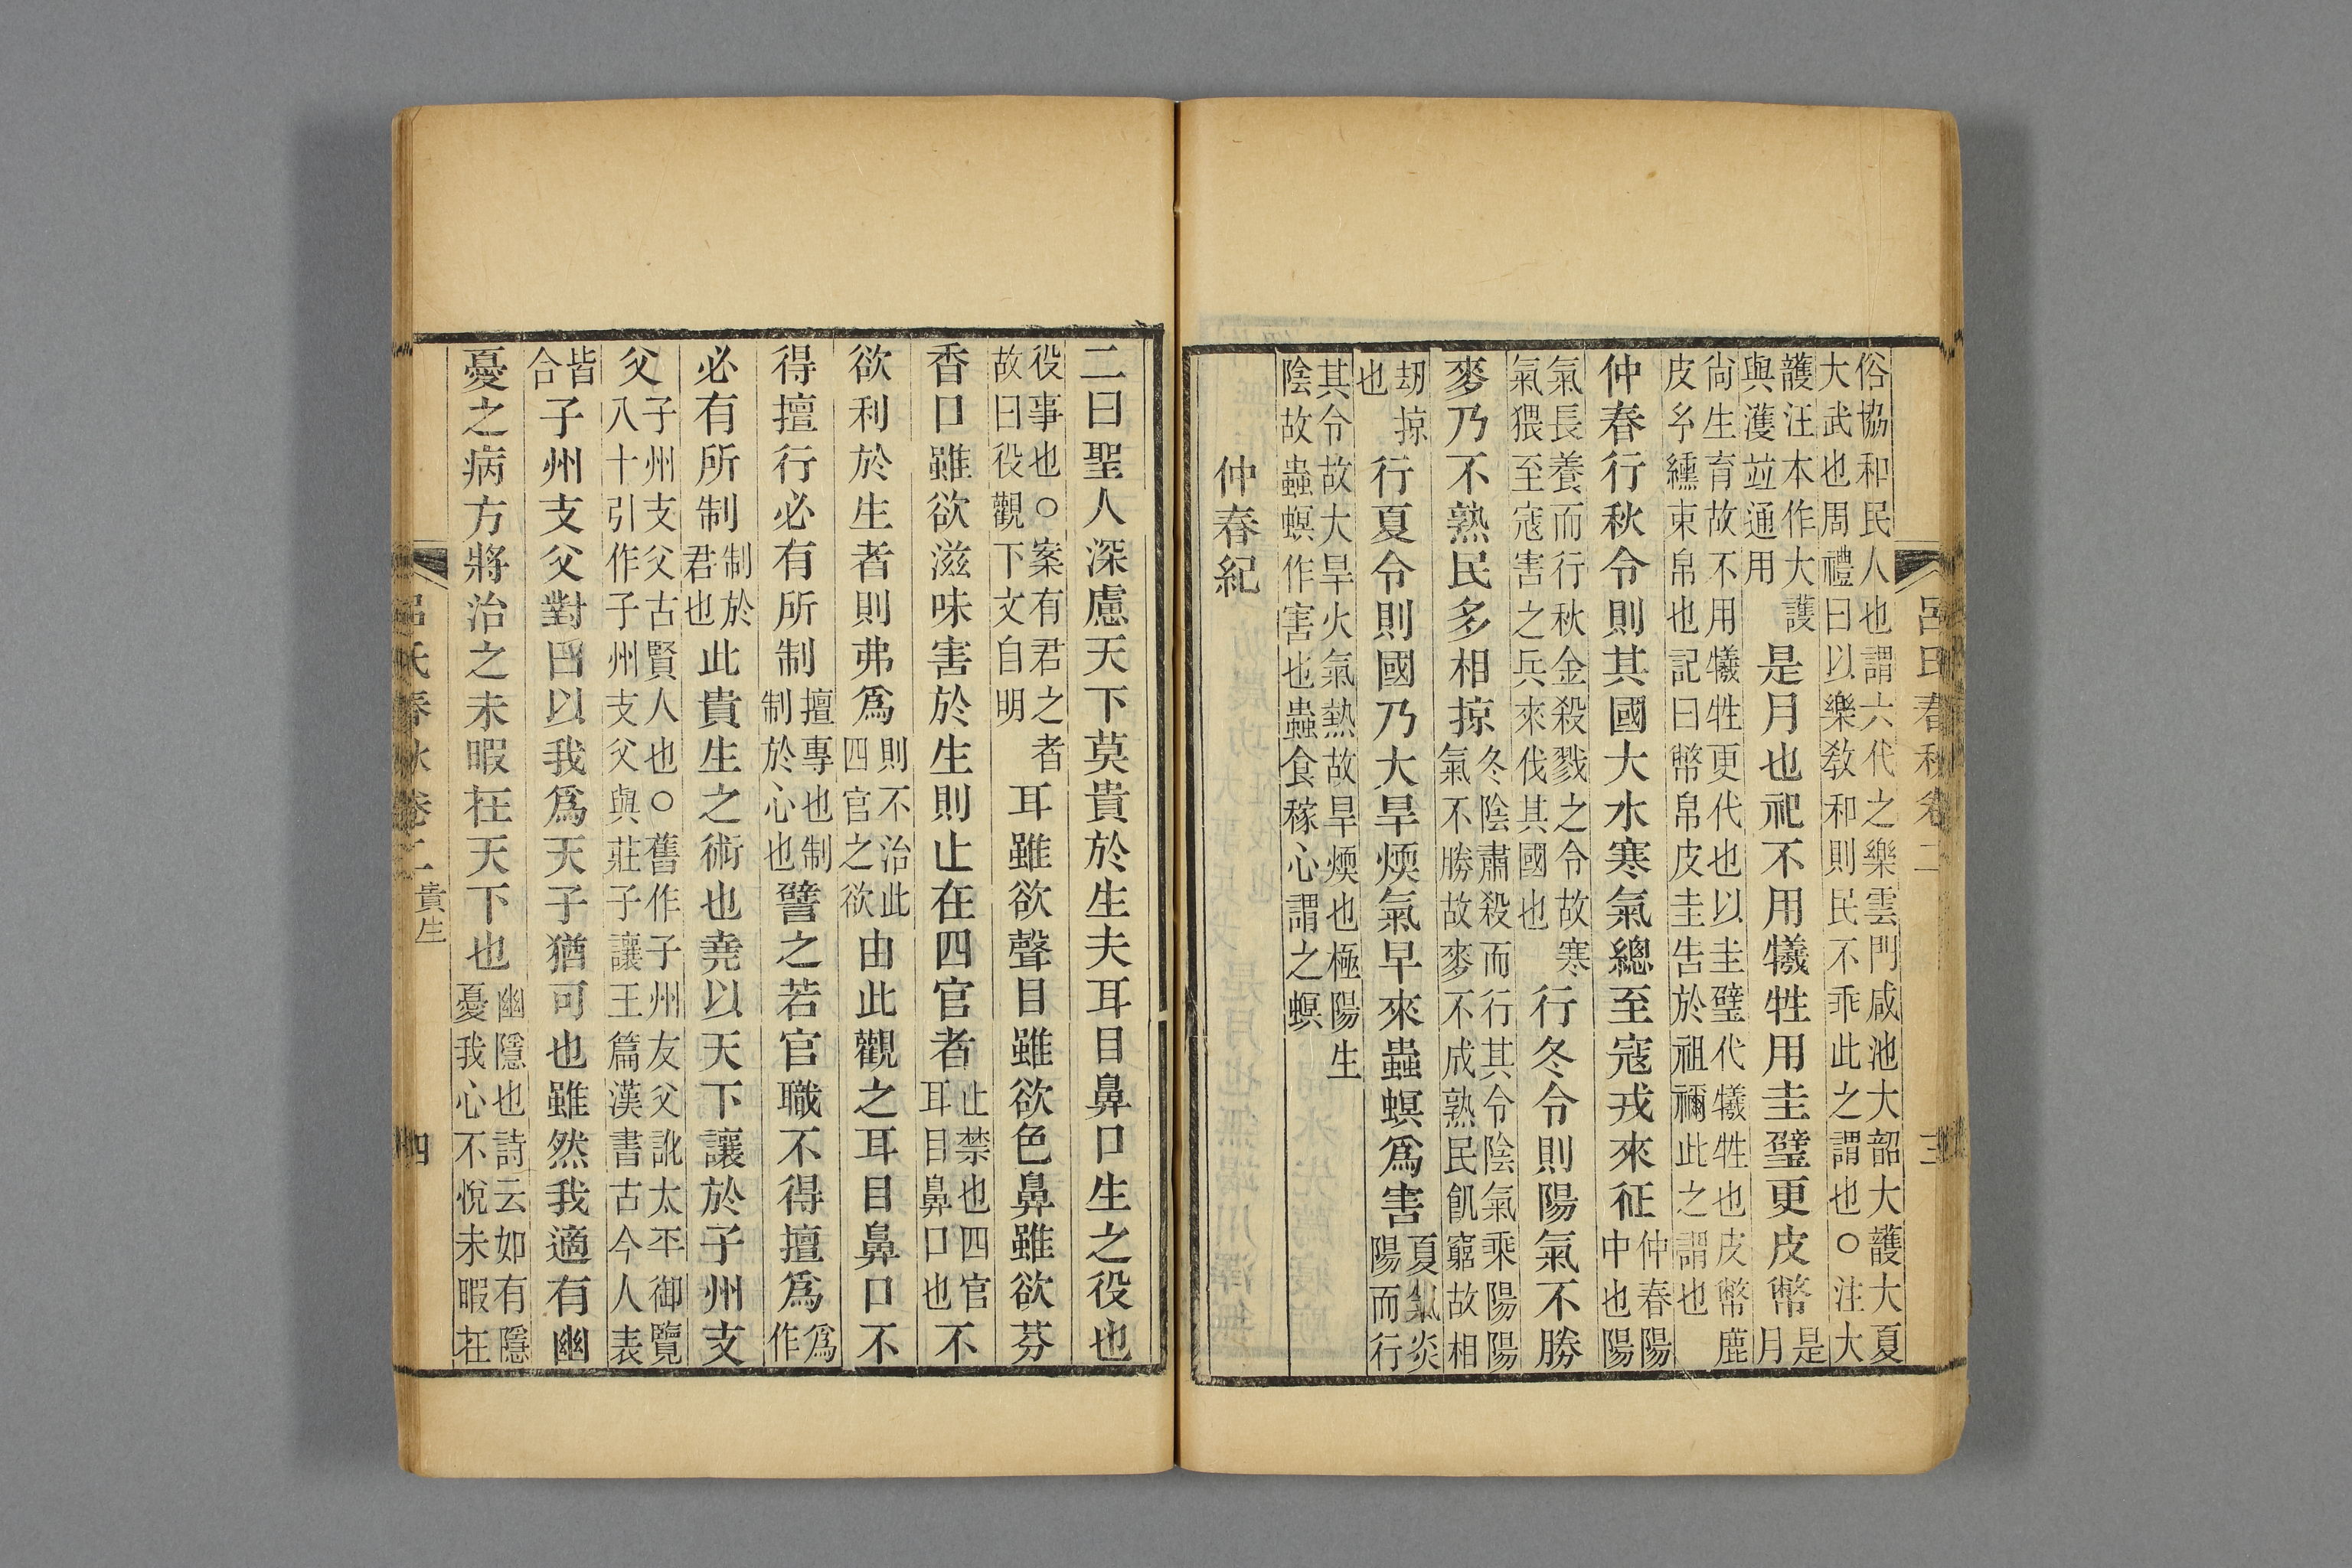 呂氏春秋卷二
三
俗協和民人也謂六代之樂雲門咸池大韶大護大夏
大武也周禮曰以樂敎和則民不乖此之謂也○注大
護汪本作大護
與濩竝通用
是月也祀不用犧牲用圭璧更皮幣
是
月
尙生育故不用犧牲更代也以圭璧代犧牲也皮幣鹿
皮幺纁束帛也記曰幣帛皮圭告於祖禰此之謂也
仲春行秋令則其國大水寒氣總至寇戎來征
仲春陽
中也陽
氣長養而行秋金殺戮之令故寒
氣猥至寇害之兵來伐其國也
行冬令則陽氣不勝
麥乃不熟民多相掠
冬陰肅殺而行其令陰氣乘陽陽
氣不勝故麥不成熟民飢窮故相
劫掠
也
行夏令則國乃大旱煗氣早來蟲螟爲害
夏氣炎
陽而行
其令故大旱火氣熱故旱煗也極陽生
陰故蟲螟作害也蟲食稼心謂之螟
仲春紀
二曰聖人深慮天下莫貴於生夫耳目鼻口生之役也
役事也○案有君之者
故曰役觀下文自明
耳雖欲聲目雖欲色鼻雖欲芬
香口雖欲滋味害於生則止在四官者
止禁也四官
耳目鼻口也
不
欲利於生者則弗爲
則不治此
四官之欲
由此觀之耳目鼻口不
得擅行必有所制
擅專也制
制於心也
譬之若官職不得擅爲
爲
作
必有所制
制於
君也
此貴生之術也堯以天下讓於子州支
父
子州支父古賢人也○舊作子州友父訛太平御覽
八十引作子州支父與莊子讓王篇漢書古今人表
皆
合
子州支父對曰以我爲天子猶可也雖然我適有幽
憂之病方將治之未暇在天下也
幽隱也詩云如有隱
憂我心不悅未暇在
呂氏春秋卷二
貴生
四